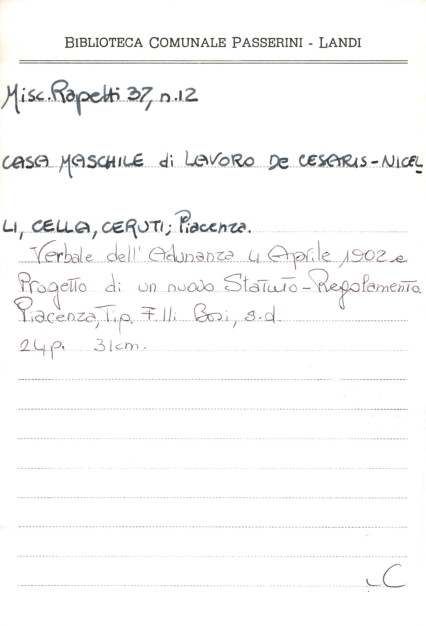 BIBLIOTECA COMUNALE PASSERINI - LANDI
Misc. Rapetti 37, n.12
CASA MASCHILE di LAVORO DE CESARIS-NICEL
LI, CELLA, CERUTI; Piacenza.
Verbale dell'Adunanza 4 Aprile 1902 e
Progetto di un nuovo Statuto-Regolamento
Piacenza, Tip. F.lli Bosi, s.d.
24p. 31cm.
C